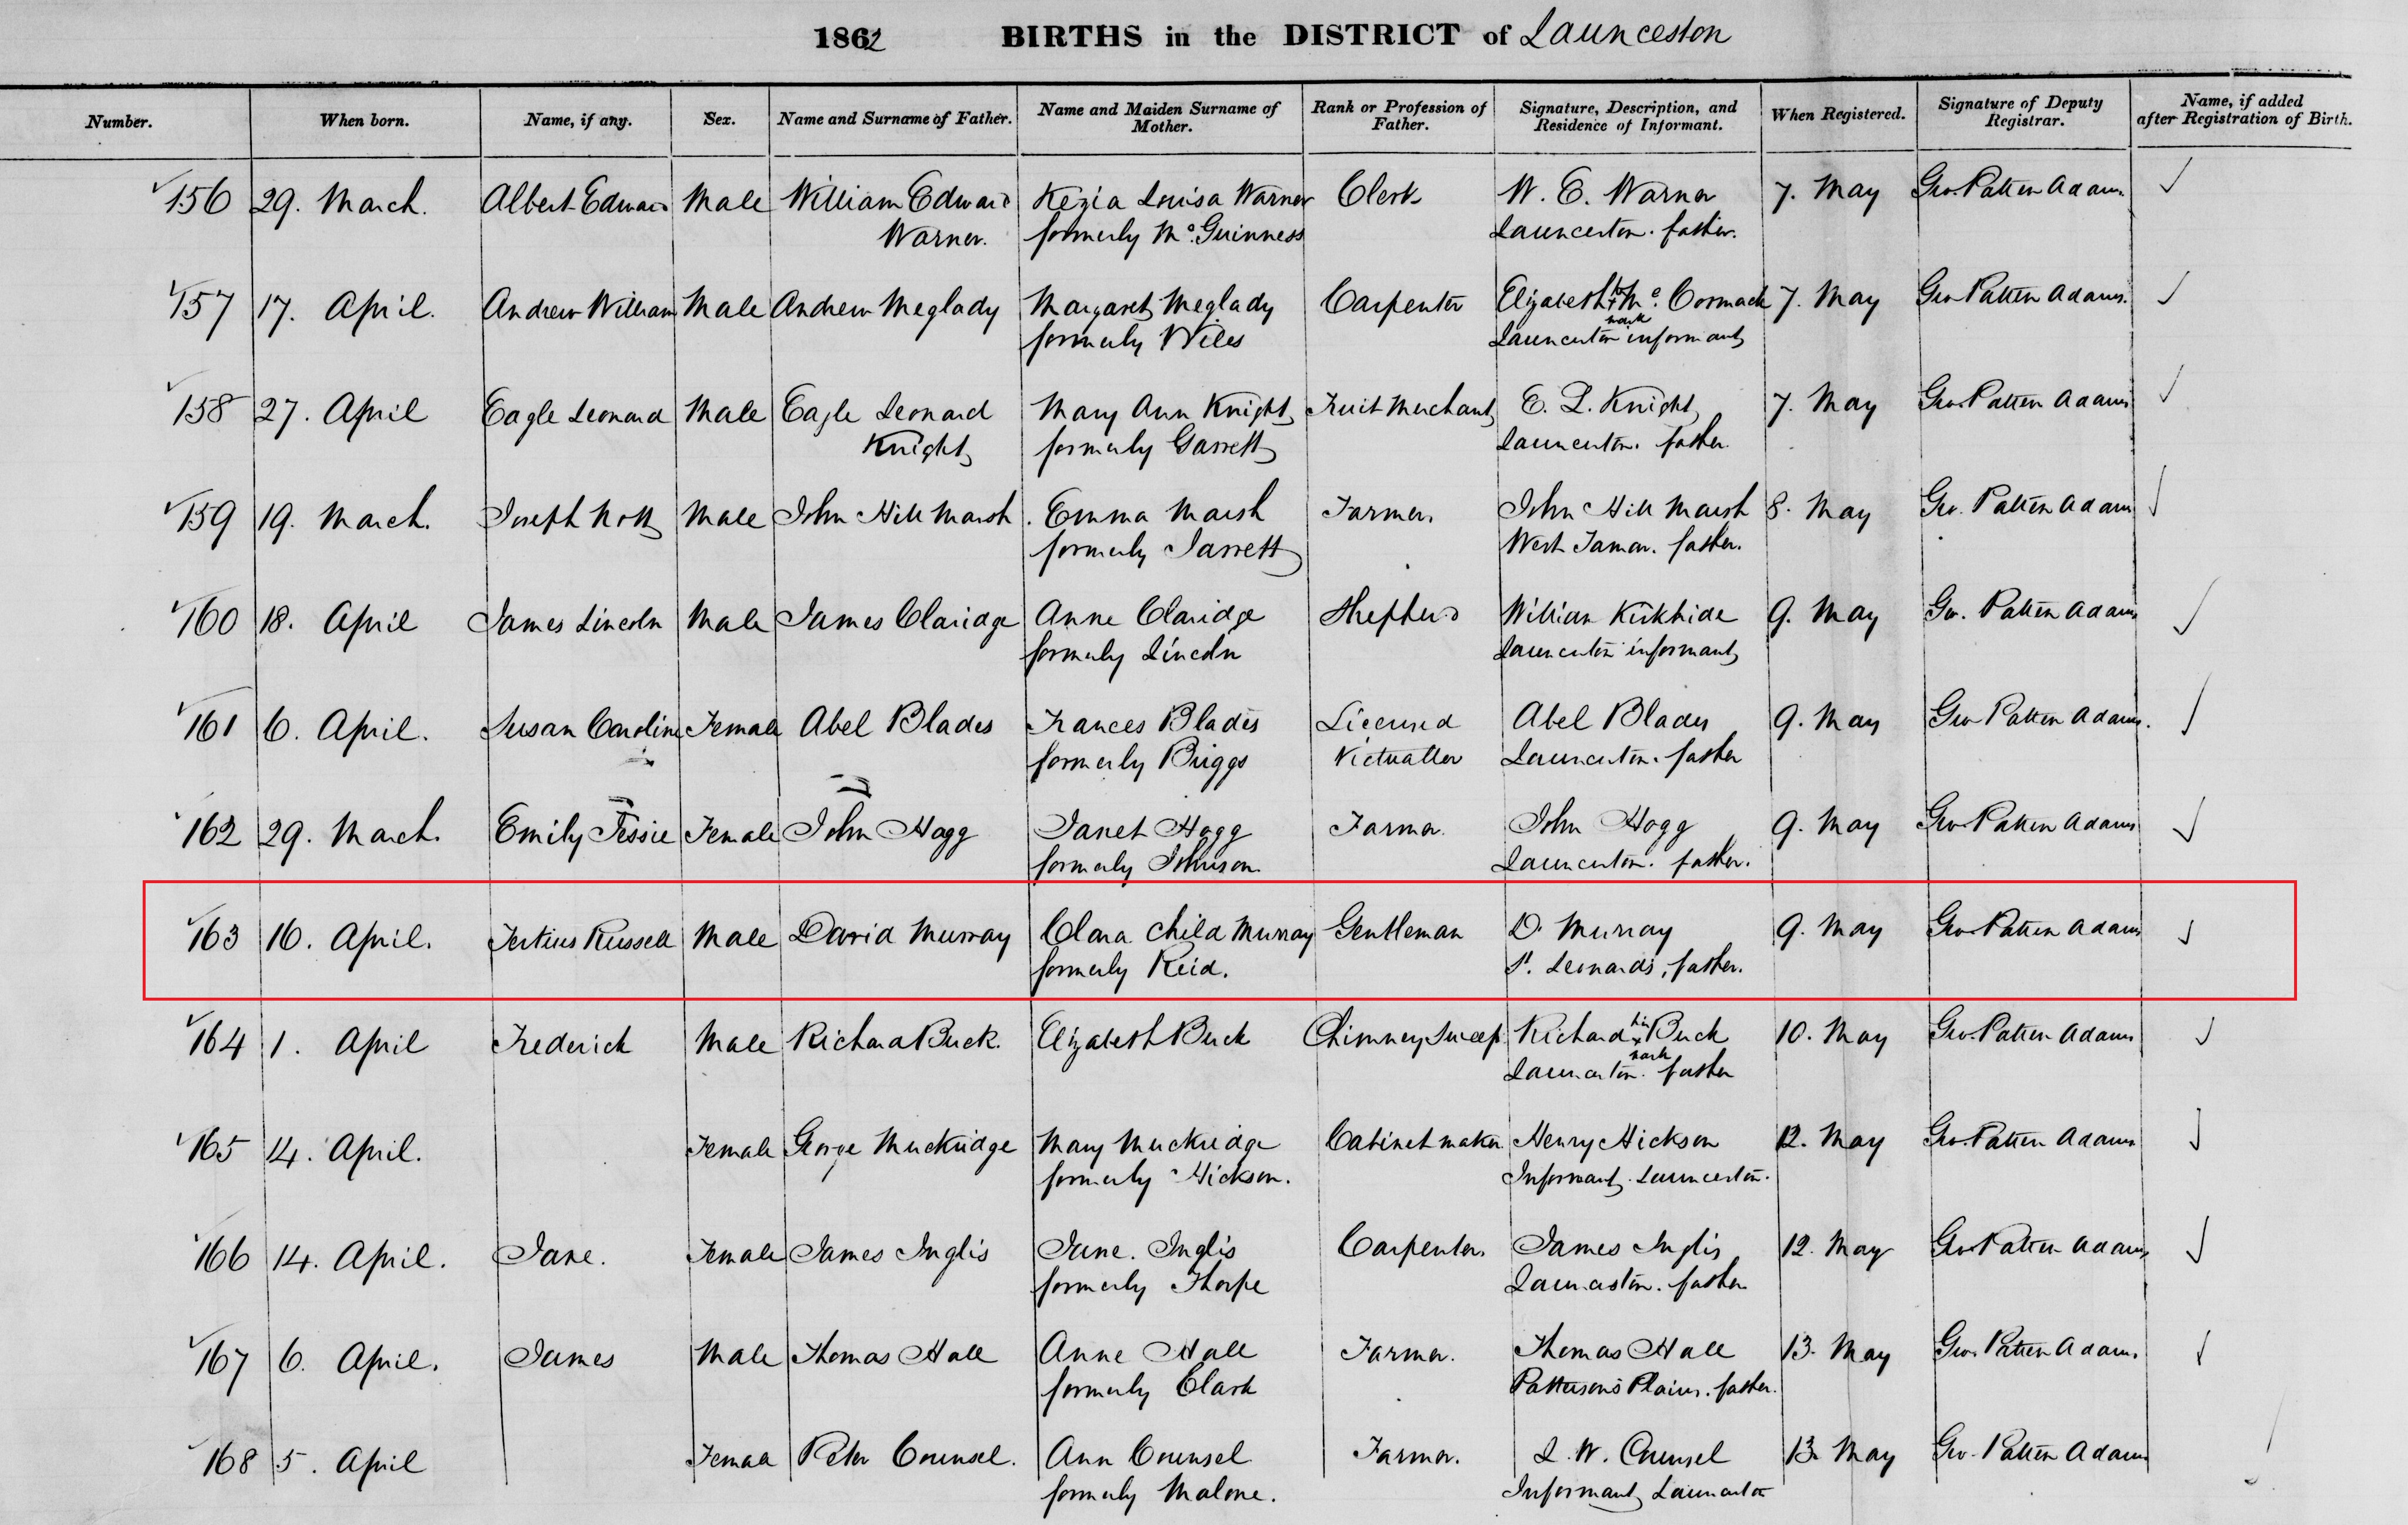 1862 BIRTHS in the DISTRICT of Launceston
Number. When born. Name, if any. Sex. Name and Surname of Father. Name and Maiden Surname of Mother. Rank or Profession of Father. Signature, Description, and Residence of Informant. When Registered. Signature of Deputy Registrar. Name, if added after Registration of Birth.
156 29. March. Albert Edward Male William Edward Kezia Louisa Warner Clerk W. E. Warner 7. May Geo. Patten Adams
Warner. formerly McGuinness Launceston. father.
157 17. April. Andrew William Male Andrew Meglady Margaret Meglady Carpenter Elizabeth her x mark McCormack 7. May Geo Patten Adams.
formerly Wiles Launceston informant
158 27. April Eagle Leonard Male Eagle Leonard Mary Ann Knight Fruit Merchant E. L. Knight 7. May Geo. Patten Adams
Knight formerly Garrett Launceston. father.
159 19. March. Joseph Nott Male John Hill Marsh. Emma Marsh Farmer. John Hill Marsh 8. May Geo. Patten Adams
formerly Jarrett West Tamar. father.
160 18. April James Lincoln Male James Claridge Anne Claridge Shepherd William Kirkhide 9. May Geo. Patten Adams
formerly Lincoln Launceston informant
161 6. April. Susan Caroline Female Abel Blades Frances Blades Licensed Abel Blades 9. May Geo Patten Adams.
formerly Briggs Victualler Launceston. father
162 29. March. Emily Jessie Female John Hogg Janet Hogg Farmer. John Hogg 9. May Geo. Patten Adams
formerly Johnson. Launceston. father.
163 16. April. Tertius Russell Male David Murray Clara Child Murray Gentleman D. Murray 9. May Geo. Patten Adams
formerly Reid. St. Leonards, father.
164 1. April Frederick Male Richard Buck. Elizabeth Buck Chimney Sweep Richard his x mark Buck 10. May Geo. Patten Adams
Launceston. father
165 14. April. Female George Muckridge Mary Muckridge Cabinet maker Henry Hickson 12. May Geo. Patten Adams
formerly Hickson. Informant. Launceston.
166 14. April. Jane. Female James Inglis Jane. Inglis Carpenter. James Inglis 12. May Geo. Patten Adams
formerly Thorpe Launceston. father
167 6. April. James Male Thomas Hall Anne Hall Farmer. Thomas Hall 13. May Geo. Patten Adams.
formerly Clark Patterson's Plains. father.
168 5. April Female Peter Counsel. Ann Counsel Farmer. L. W. Counsel 13. May Geo. Patten Adams
formerly Malone. Informant Launceston